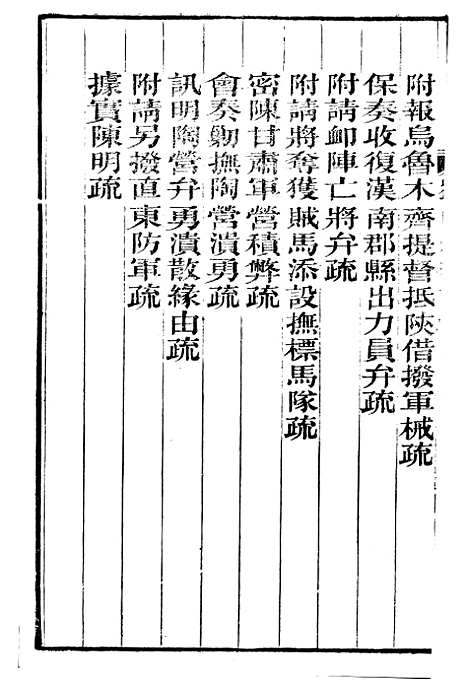 附報烏魯木齊提督抵陝借撥軍械疏
保奏收復漢南郡縣出力員弁疏
附請卹陣亡將弁疏
附請將奪獲賊馬添設撫標馬隊疏
密陳甘肅軍營積弊疏
會奏勦撫陶營潰勇疏
訊明陶營弁勇潰散緣由疏
附請另撥直東防軍疏
據實陳明疏